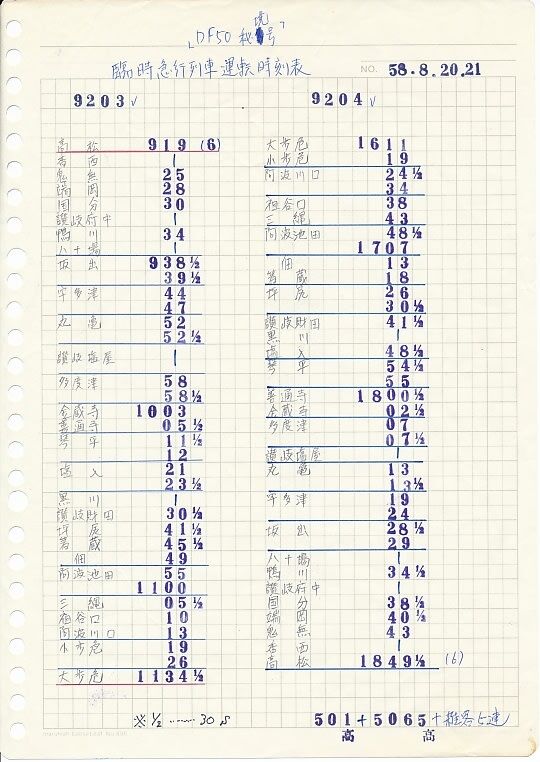 「DF50 秘境号」
臨時急行列車運転時刻表
NO. 58.8.20.21
9203 ∨
高松 919 (6)
香西 |
鬼無 25
端岡 28
国分 30
讃岐府中 |
鴨川 34
八十場 |
坂出 938½
39½
宇多津 44
47
丸亀 52
52½
讃岐塩屋 |
多度津 58
58½
金蔵寺 1003
善通寺 05½
琴平 11½
12
塩入 21
23½
黒川 |
讃岐財田 30½
坪尻 41½
箸蔵 45½
佃 49
阿波池田 55
1100
三縄 05½
祖谷口 10
阿波川口 13
小歩危 19
26
大歩危 1134½
9204 ∨
大歩危 1611
小歩危 19
阿波川口 24½
34
祖谷口 38
三縄 43
阿波池田 48½
1707
佃 13
箸蔵 18
坪尻 26
30½
讃岐財田 41½
黒川 |
塩入 48½
琴平 54½
55
善通寺 1800½
金蔵寺 02½
多度津 07
07½
讃岐塩屋 |
丸亀 13
13½
宇多津 19
24
坂出 28½
29
八十場 |
鴨川 34½
讃岐府中 |
国分 38½
端岡 40½
鬼無 43
香西 |
高松 1849½ (6)
※½ …… 30 S
501+5065+
高 高